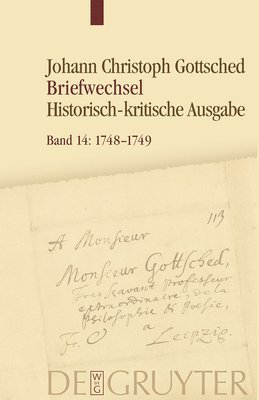 Johann Christoph Gottsched
Briefwechsel
Historisch-kritische Ausgabe
Band 14: 1748–1749
113
A Monsieur
Monsieur Gottsched,
Tres savant Professeur
extraordinaire, de la
Philosophie & Poesie,
Fr. à Leipzig.
DE GRUYTER